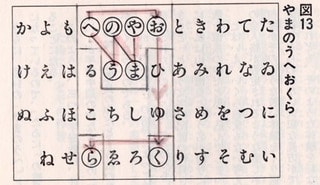 図13
やまのうへおくら
たゐにい
てなつむ
われをそ
きみめす
とあさり
おひゆく
やましろ
のうちゑ
へるこら
もはほせ
よえふね
かけぬ